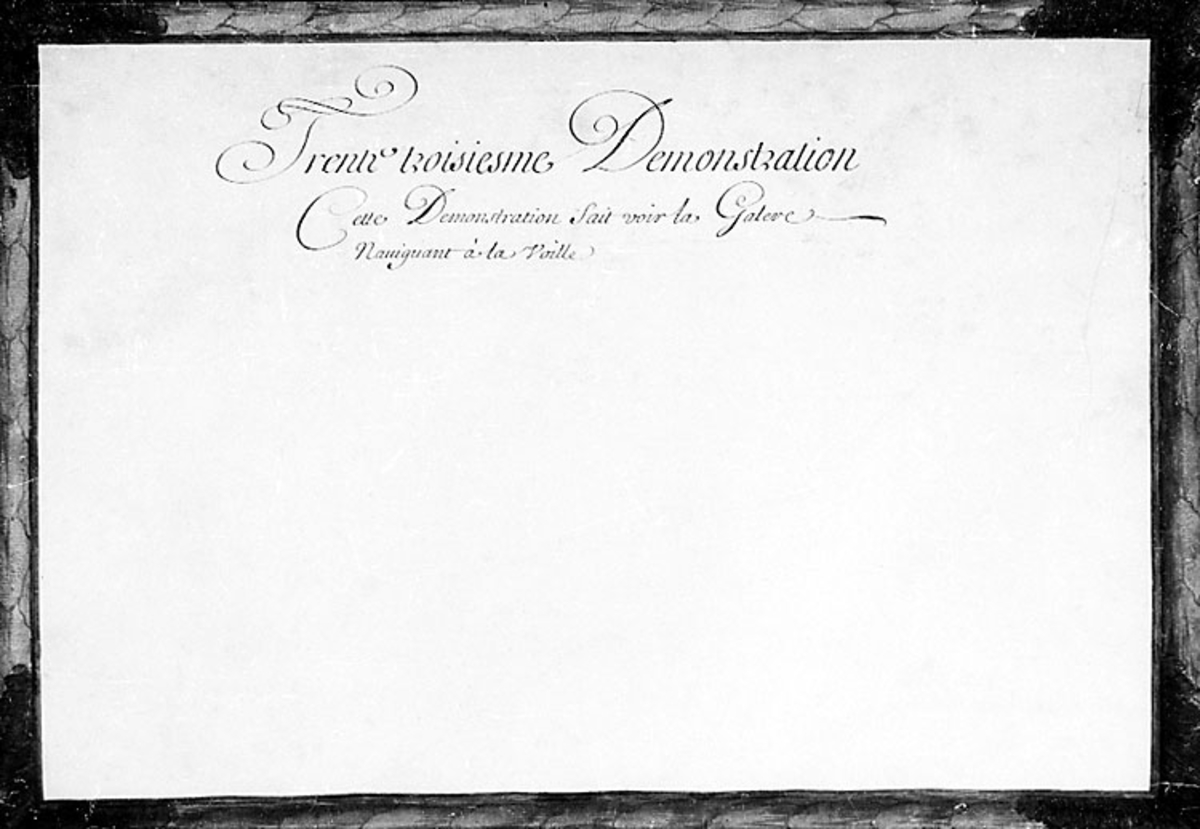 Trente troisiesme Demonstration
Cette Demonstration fait voir la Galere
Nauiguant à la Voille